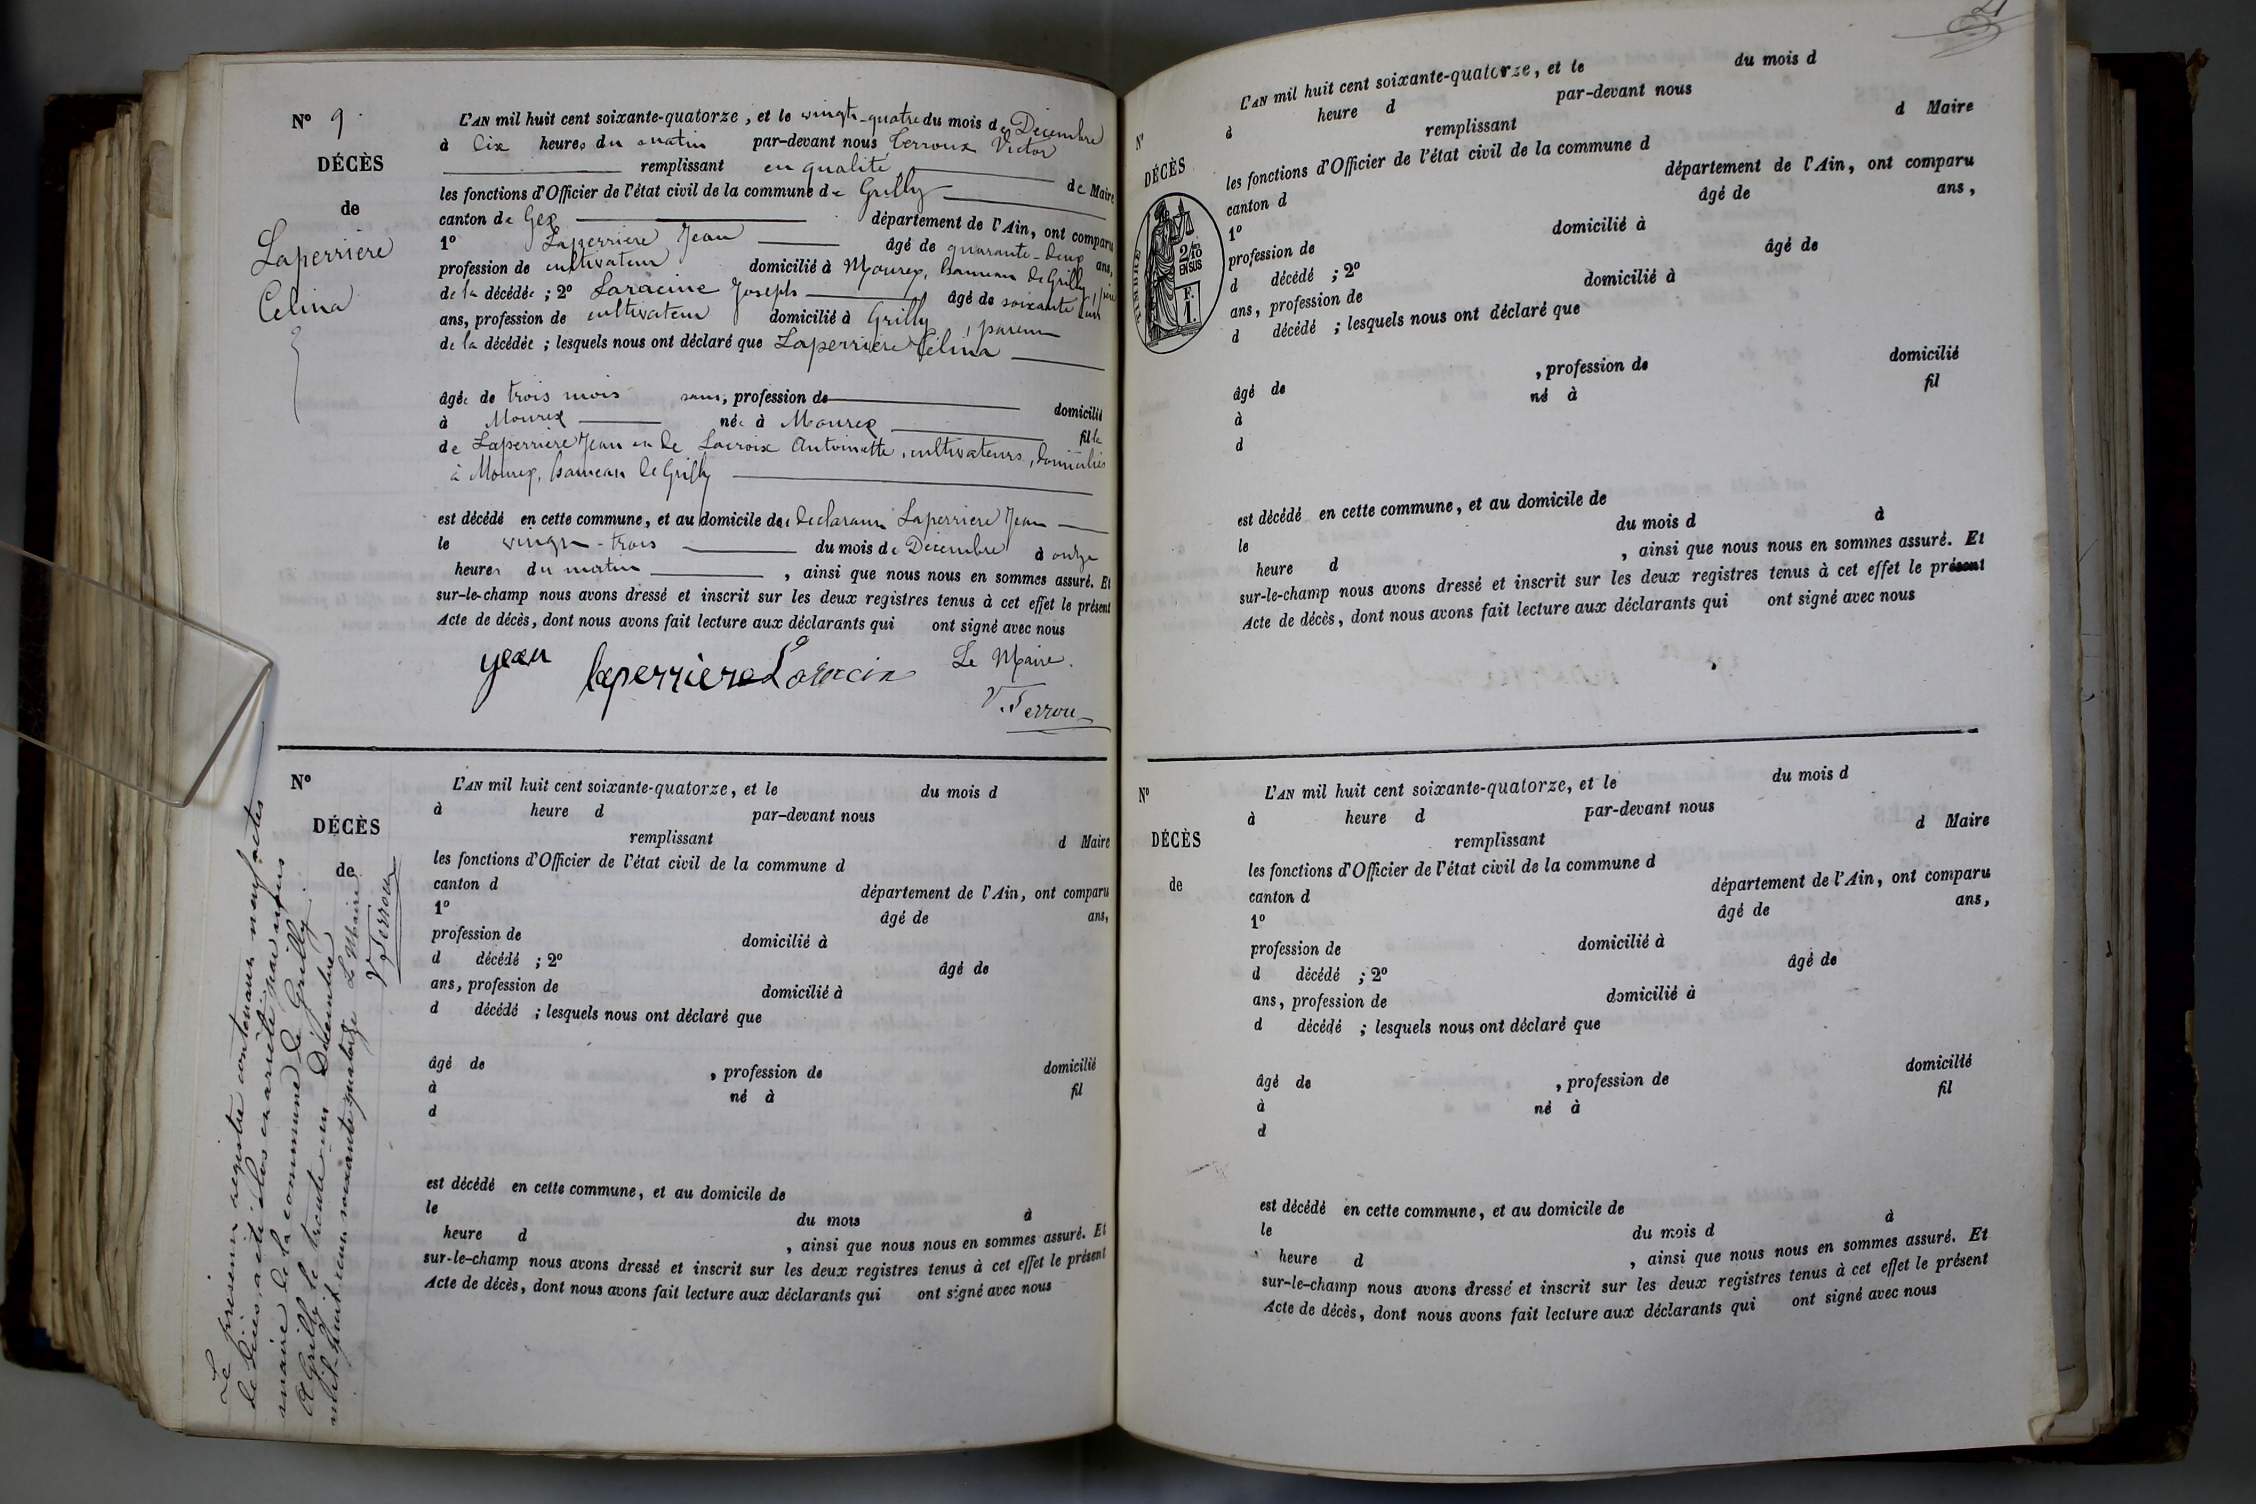 N° 9.
DÉCÈS
de
Laperrière
Celina
L'AN mil huit cent soixante-quatorze, et le vingt-quatre du mois de Décembre
à dix heures du matin par-devant nous Terroux Victor
remplissant en qualité de Maire
les fonctions d'Officier de l'état civil de la commune de Grilly
canton de Gex département de l'Ain, ont comparu
1° Laperrière Jean âgé de quarante-deux ans,
profession de cultivateur domicilié à Mourex, hameau de Grilly, père
de la décédée ; 2° Laracine Joseph âgé de soixante
ans, profession de cultivateur domicilié à Grilly, parent
de la décédée ; lesquels nous ont déclaré que Laperrière Célina
âgée de trois mois ans, profession de domicilié
à Mourex née à Mourex fille
de Laperrière Jean et de Lacroix Antoinette, cultivateurs, domiciliés
à Mourex, hameau de Grilly
est décédé en cette commune, et au domicile de déclarant Laperrière Jean
le vingt-trois du mois de Décembre à onze
heures du matin, ainsi que nous nous en sommes assuré. Et
sur-le-champ nous avons dressé et inscrit sur les deux registres tenus à cet effet le présent
Acte de décès, dont nous avons fait lecture aux déclarants qui ont signé avec nous
jean laperrière Laracin Le Maire.
V. Terrou
N°
DÉCÈS
de
L'AN mil huit cent soixante-quatorze, et le du mois d
à heure d par-devant nous
remplissant d Maire
les fonctions d'Officier de l'état civil de la commune d
canton d département de l'Ain, ont comparu
1° âgé de ans,
profession de domicilié à
d décédé ; 2° âgé de
ans, profession de domicilié à
d décédé ; lesquels nous ont déclaré que
âgé de , profession de domicilié
à né à fil
d
est décédé en cette commune, et au domicile de
le du mois à
heure d , ainsi que nous nous en sommes assuré. Et
sur-le-champ nous avons dressé et inscrit sur les deux registres tenus à cet effet le présent
Acte de décès, dont nous avons fait lecture aux déclarants qui ont signé avec nous
Le présent registre contenant neuf actes
de décès, a été clos et arrêté par nous
maire de la commune de Grilly.
A Grilly le trente-un Décembre
mil-huit-cent soixante quatorze Le Maire
V. Terrou
21
N°
DÉCÈS
TIMBRE
2/10
EN SUS
F.
1.
L'AN mil huit cent soixante-quatorze, et le du mois d
à heure d par-devant nous
remplissant d Maire
les fonctions d'Officier de l'état civil de la commune d
canton d département de l'Ain, ont comparu
1° âgé de ans,
profession de domicilié à
d décédé ; 2° âgé de
ans, profession de domicilié à
d décédé ; lesquels nous ont déclaré que
âgé de , profession de domicilié
à né à fil
d
est décédé en cette commune, et au domicile de
le du mois d à
heure d , ainsi que nous nous en sommes assuré. Et
sur-le-champ nous avons dressé et inscrit sur les deux registres tenus à cet effet le présent
Acte de décès, dont nous avons fait lecture aux déclarants qui ont signé avec nous
N°
DÉCÈS
de
L'AN mil huit cent soixante-quatorze, et le du mois d
à heure d par-devant nous
remplissant d Maire
les fonctions d'Officier de l'état civil de la commune d
canton d département de l'Ain, ont comparu
1° âgé de ans,
profession de domicilié à
d décédé ; 2° âgé de
ans, profession de domicilié à
d décédé ; lesquels nous ont déclaré que
âgé de , profession de domicilié
à né à fil
d
est décédé en cette commune, et au domicile de
le du mois d à
heure d , ainsi que nous nous en sommes assuré. Et
sur-le-champ nous avons dressé et inscrit sur les deux registres tenus à cet effet le présent
Acte de décès, dont nous avons fait lecture aux déclarants qui ont signé avec nous